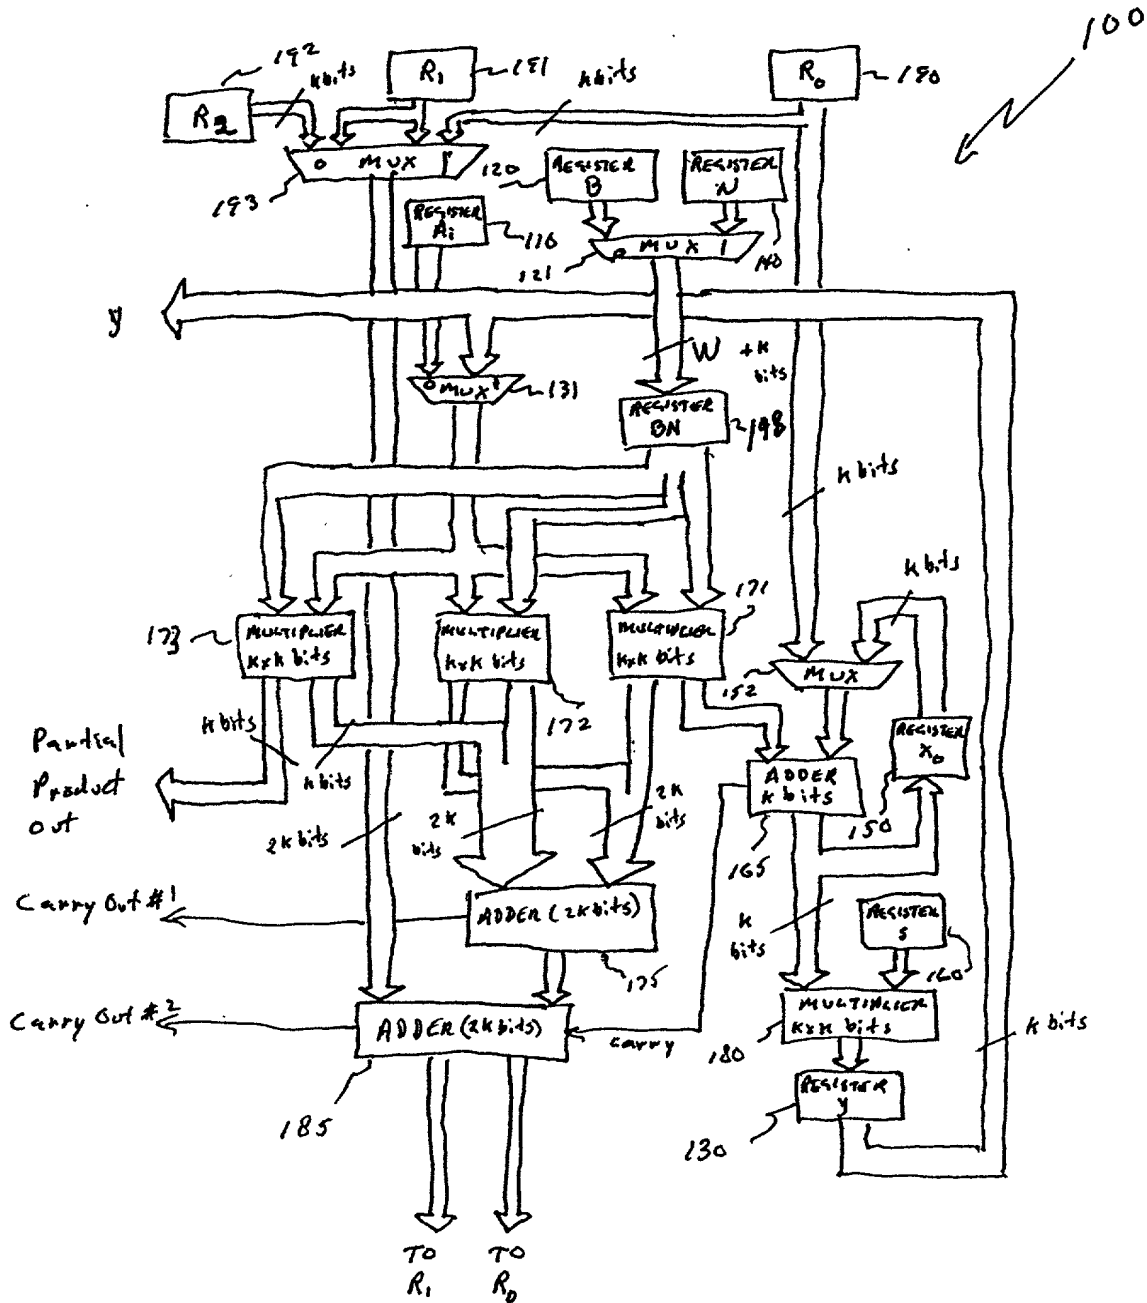 100
192
k bits
R2
R1
191
k bits
R0
190
0 MUX 1
193
120
REGISTER
B
REGISTER
N
140
REGISTER
Ai
110
0 MUX 1
121
y
W + k
bits
0 MUX 1
131
REGISTER
BN
198
k bits
k bits
173
MULTIPLIER
k x k bits
MULTIPLIER
k x k bits
172
MULTIPLIER
k x k bits
171
152
MUX
REGISTER
X0
150
Partial
Product
Out
k bits
k bits
2k bits
2k
bits
2k
bits
ADDER
k bits
165
Carry Out #1
ADDER (2k bits)
175
k
bits
REGISTER
S
160
Carry Out #2
ADDER (2k bits)
carry
185
MULTIPLIER
k x k bits
180
k bits
REGISTER
y
130
TO
R1
TO
R0